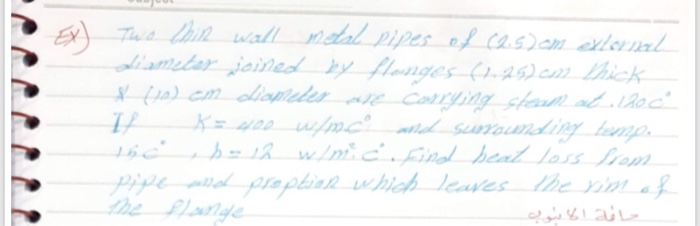 Ex) Two thin wall metal pipes of (2.5) cm external
diameter joined by flanges (1.25) cm thick
& (10) cm diameter are carrying steam at 120 c°
If K = 400 w/m c° and surrounding temp.
15 c°, h = 12 w/m². c°. Find heat loss from
pipe and proption which leaves the rim of
the flange
حافة الانبوب